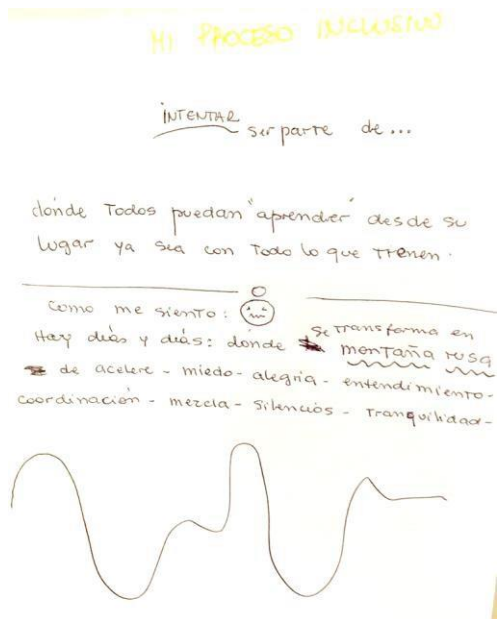 MI PROCESO INCLUSIVO
INTENTAR ser parte de...
dónde Todos puedan "aprender" desde su
lugar ya sea con Todo lo que Tienen.
Como me siento:
Hay días y días: dónde se transforma en
montaña rusa
de acelere - miedo - alegría - entendimiento -
coordinación - mezcla - silencios - Tranquilidad -